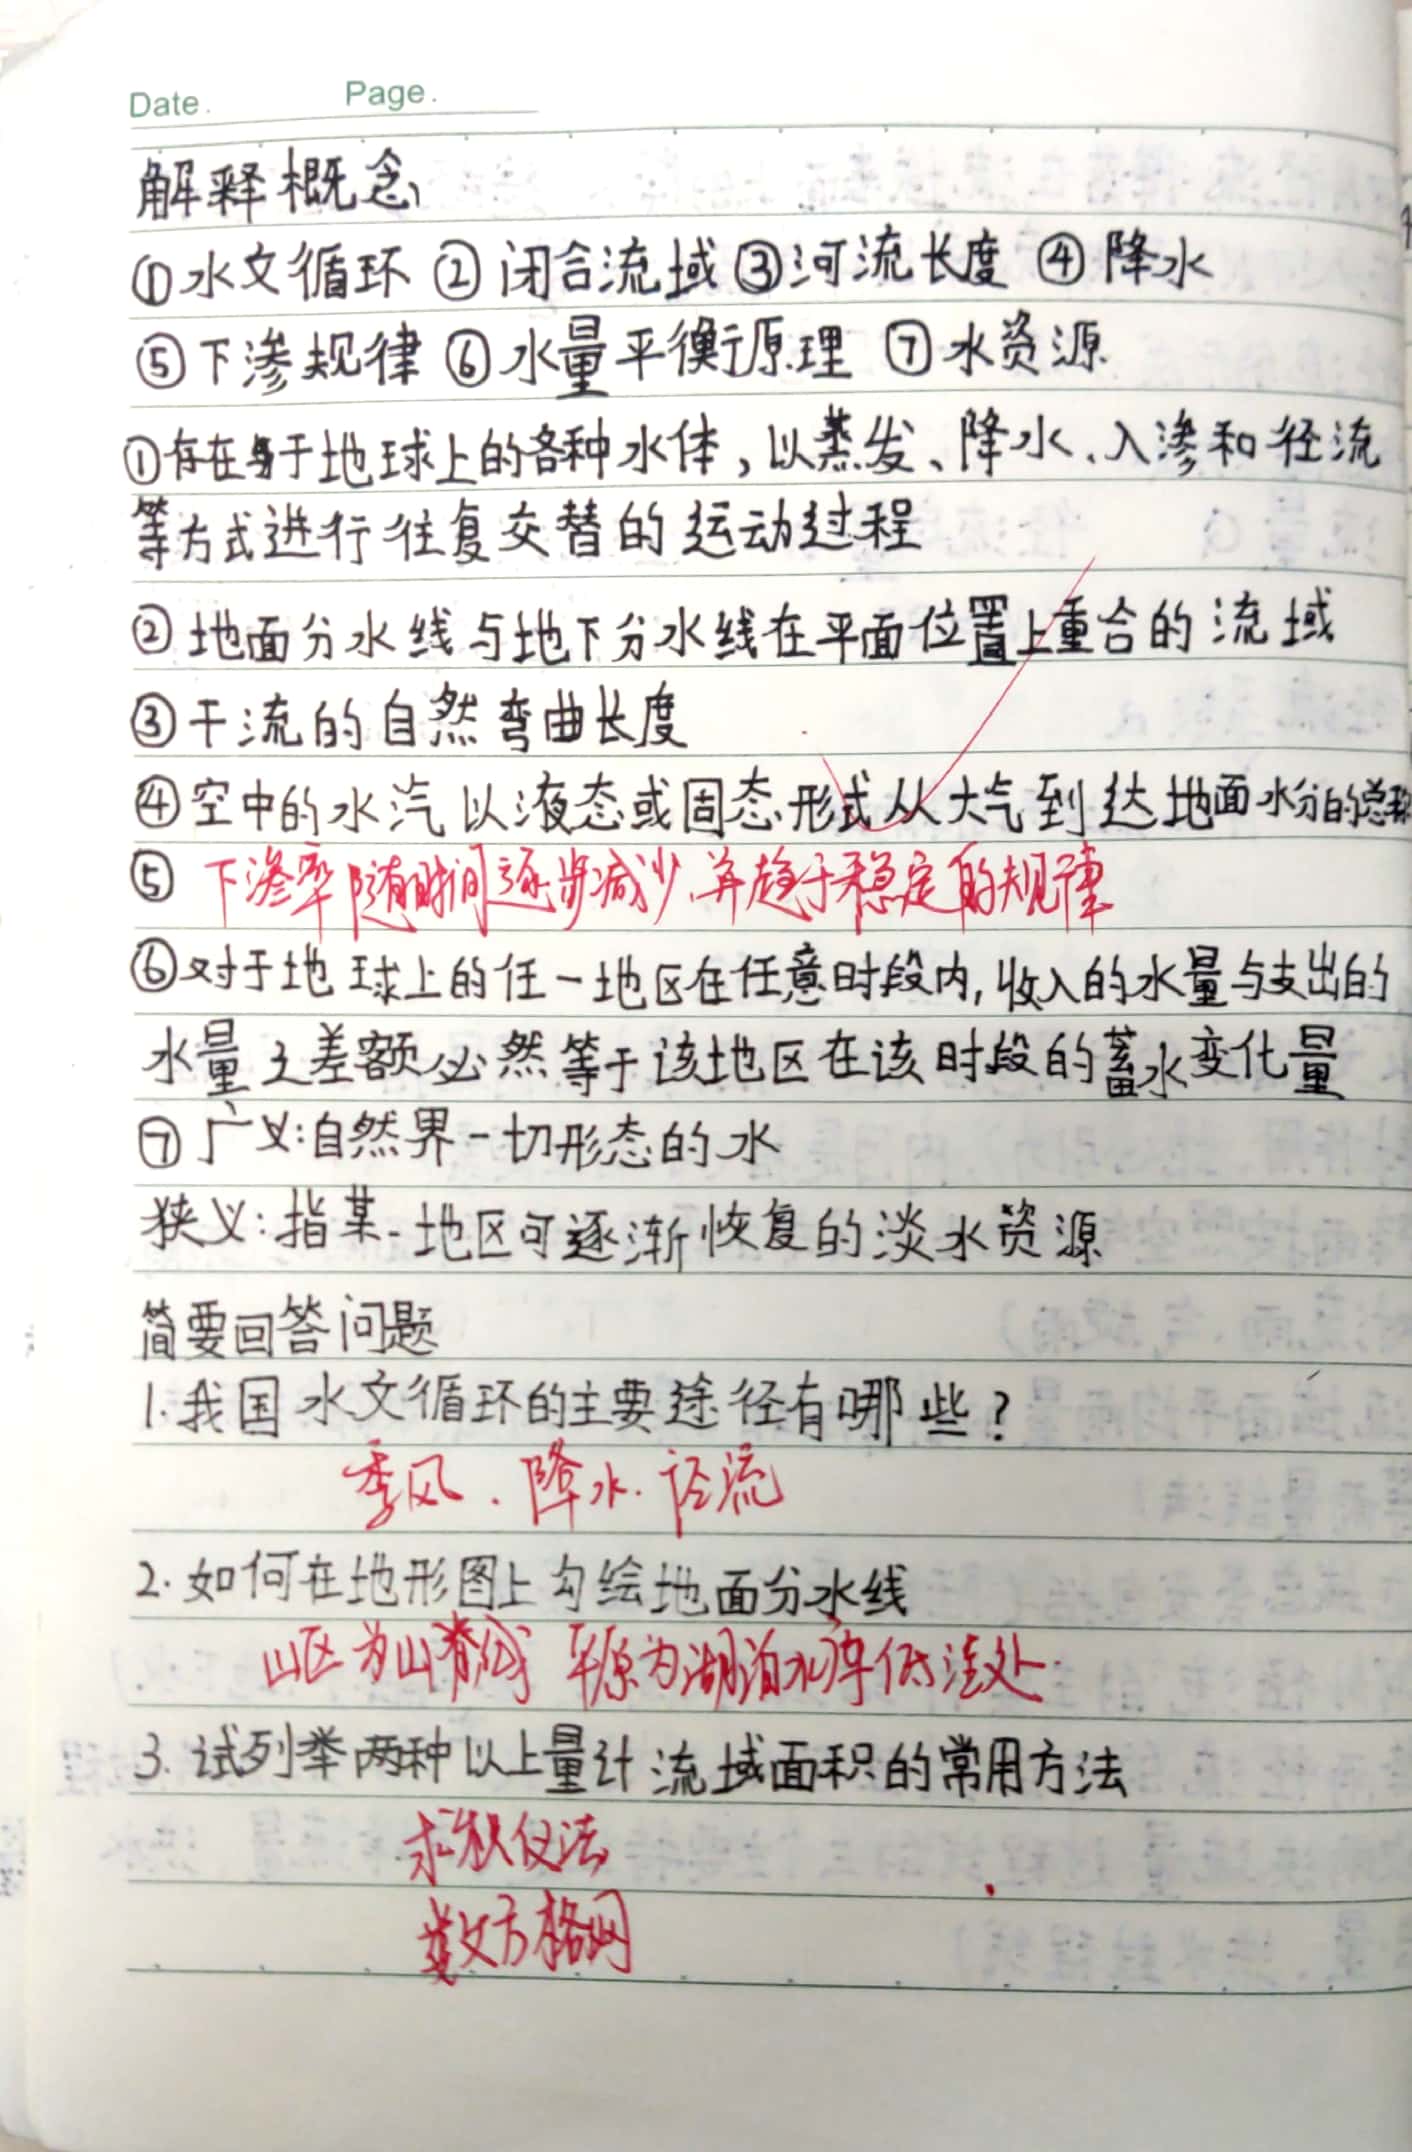 Date. Page.
解释概念
①水文循环 ②闭合流域 ③河流长度 ④降水
⑤下渗规律 ⑥水量平衡原理 ⑦水资源
①存在于地球上的各种水体,以蒸发、降水、入渗和径流
等方式进行往复交替的运动过程
②地面分水线与地下分水线在平面位置上重合的流域
③干流的自然弯曲长度
④空中的水汽以液态或固态形式从大气到达地面水分的总称
⑤下渗率随时间逐步减少、并趋于稳定的规律
⑥对于地球上的任一地区在任意时段内,收入的水量与支出的
水量之差额必然等于该地区在该时段的蓄水变化量
⑦广义:自然界一切形态的水
狭义:指某一地区可逐渐恢复的淡水资源
简要回答问题
1.我国水文循环的主要途径有哪些?
季风.降水.径流
2.如何在地形图上勾绘地面分水线
山区为山脊线 平原为湖泊水库低洼处.
3.试列举两种以上量计流域面积的常用方法
求积仪法
数方格网